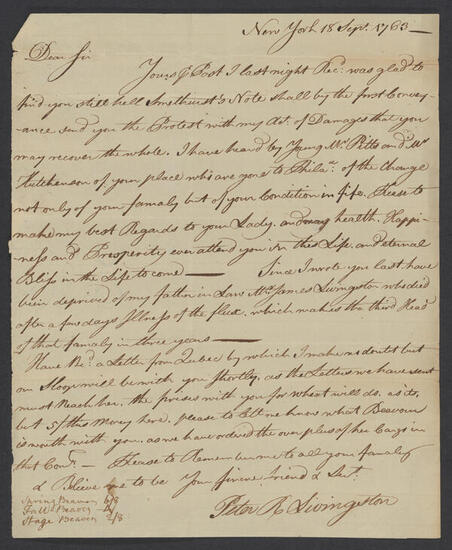 New York 18 Sepr. 1763
Dear Sir
Yours ⅌ Post I last night Recd. was glad to
find you still held Smethurst's Note shall by the first Convey-
ance send you the Protest with my Act. of Damages that you
may recover the whole. I have heard by Young Mr. Pitts and Mr.
Hutchenson of your place who are gone to Philaa. of the Change
not only of your famaly but of your Condition in life. Please to
make my best Regards to your Lady, and may health, Happi-
ness and Prosperity ever attend you in this Life and eternal
Bliss in the Life to come — Since I wrote you last have
been deprived of my father in Law Mr. James Livingston who died
after a few days Illness of the flux, which makes the third Head
of that famaly in three years —
Have Recd. a Letter from Quebec by which I make no doubt but
our Sloop will be with you shortly, as the Letters we have sent
must Reach her. the prices with you for wheat will do, as its
but 5/ this Money here, please to lett me know what Beavour
is worth with you, as we have ordered the surplus of her Cargo in
that Comy. — Please to Remember me to all your famaly
& Believe me to be Your sincere friend & Servt.
Peter R Livingston
Spring Beaver 6/8
Fall Beaver
Stage Beaver 2/8